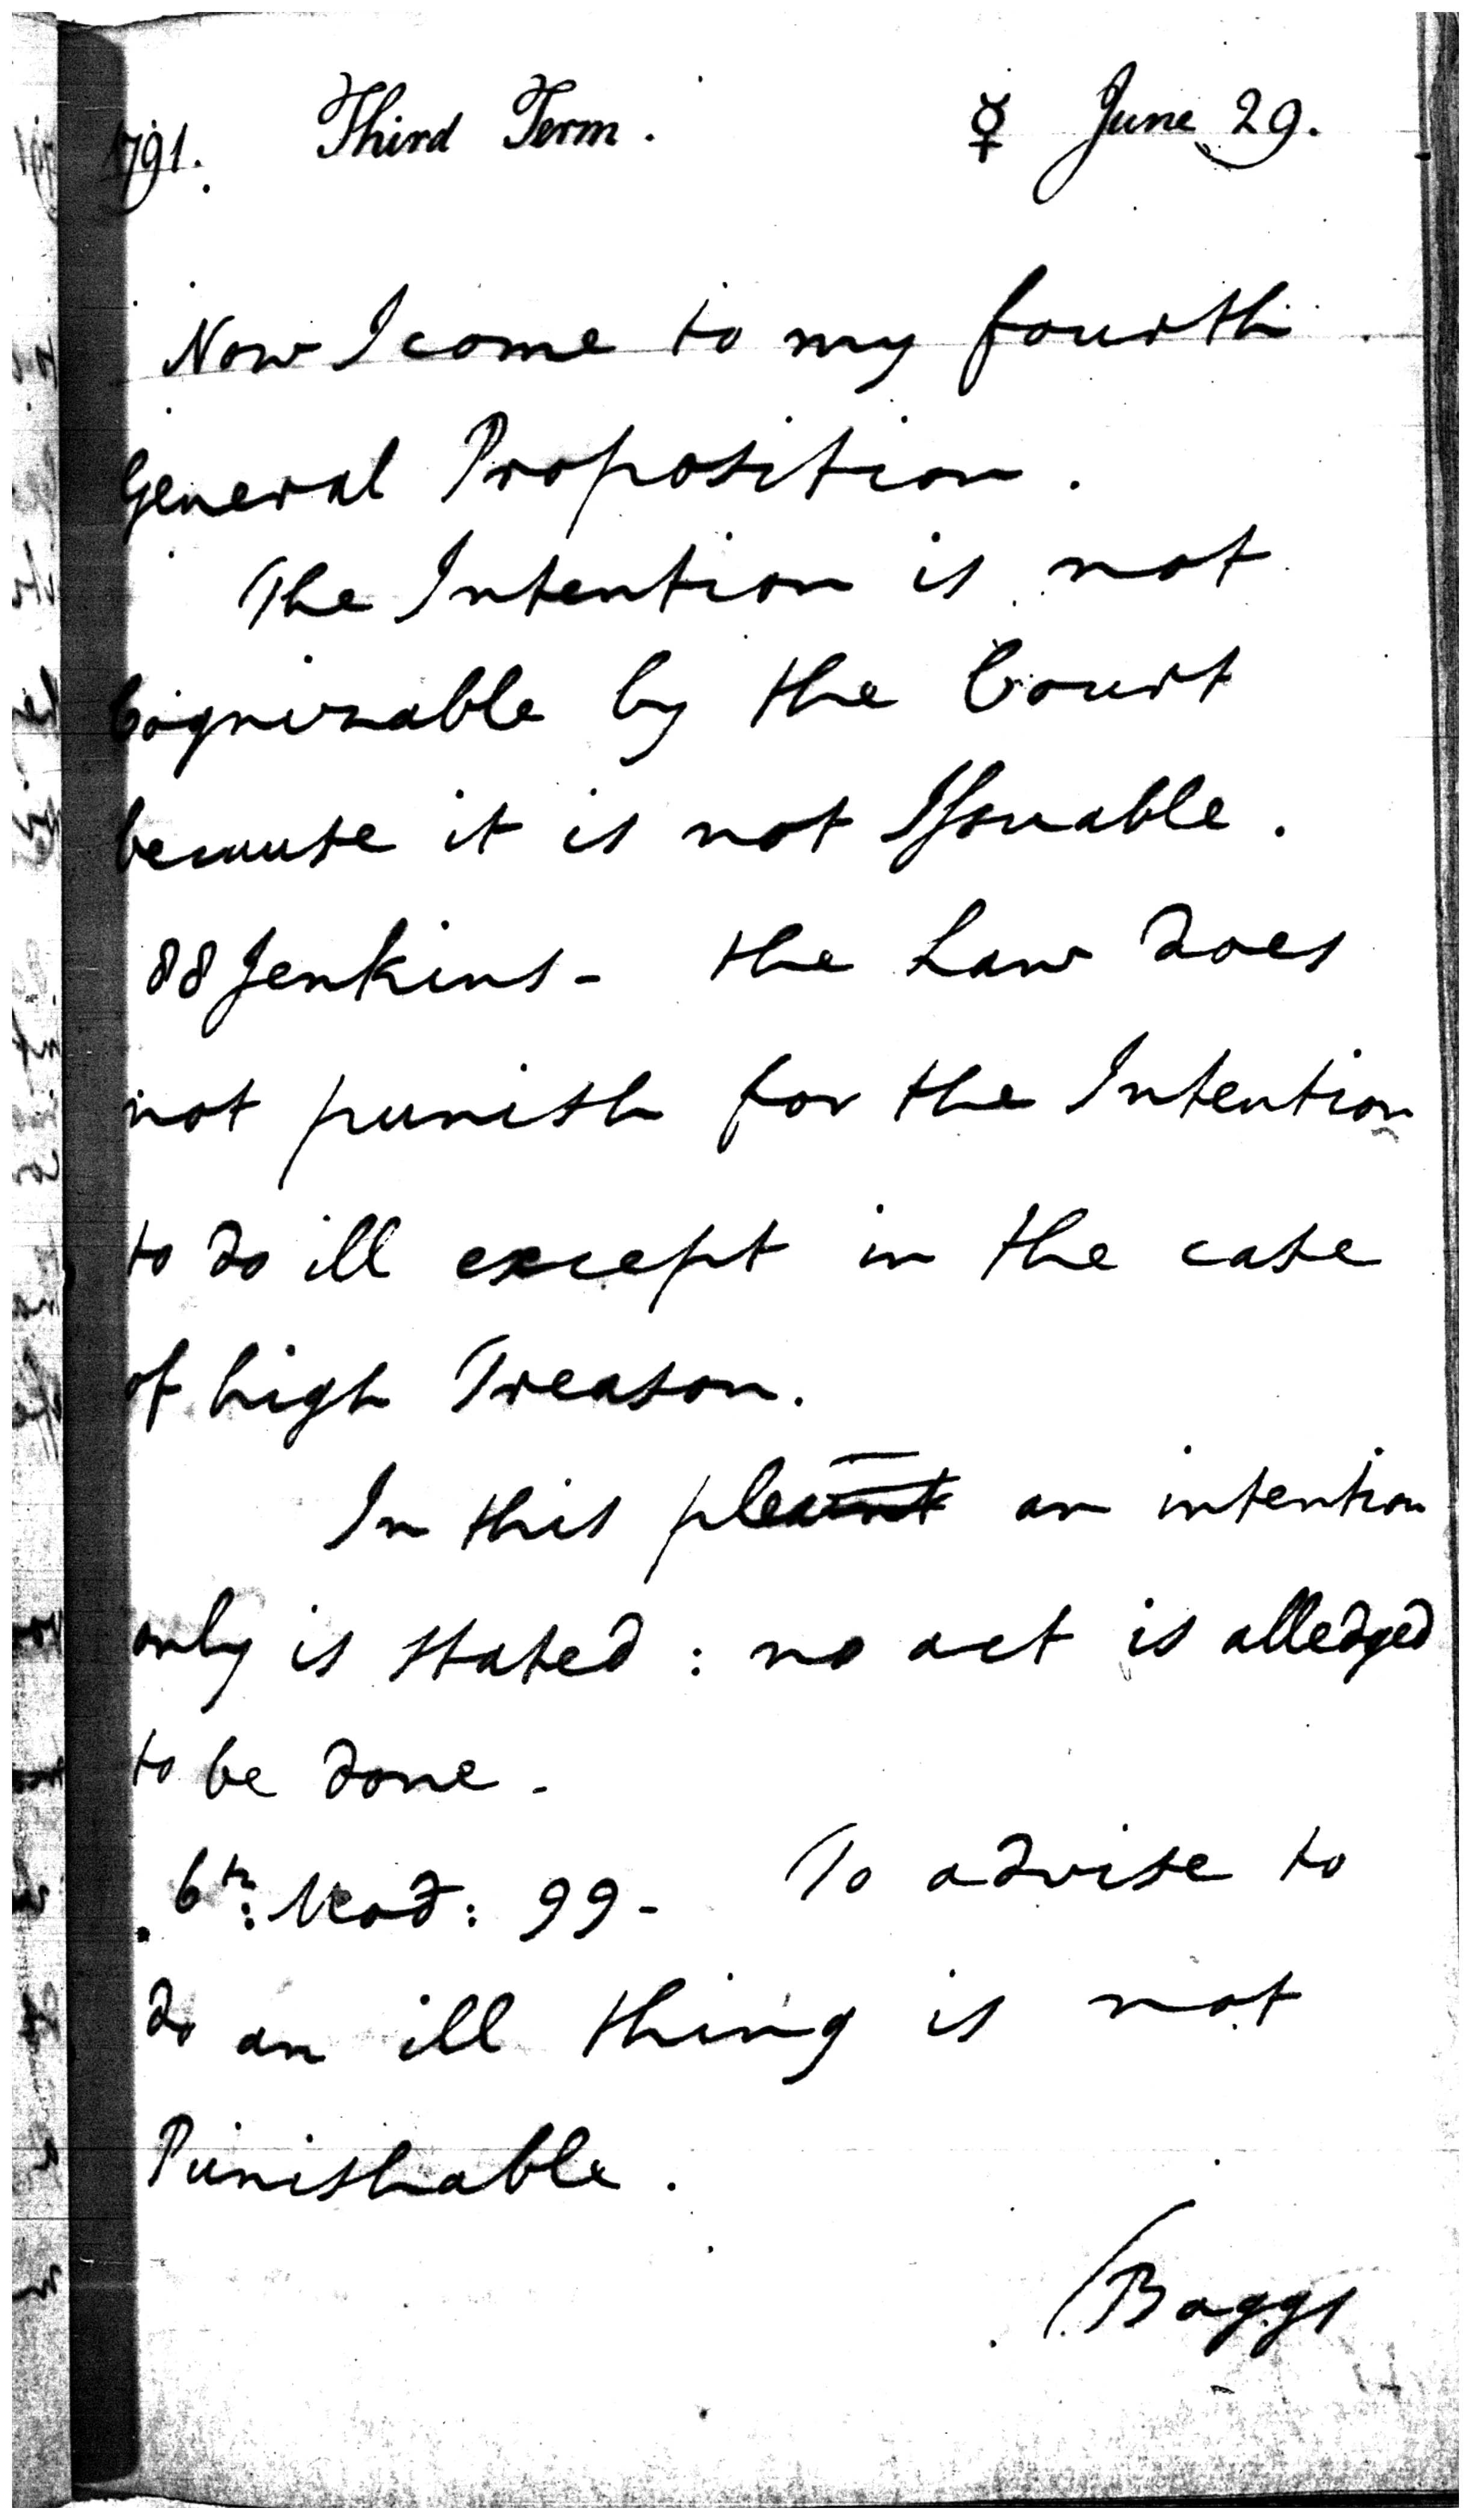 1791. Third Term. ☿ June 29.
Now I come to my fourth
General Proposition.
The Intention is not
Cognizable by the Court
because it is not Issuable.
88 Jenkins - the Law does
not punish for the Intention
to do ill except in the case
of high Treason.
In this plea an intention
only is stated : no act is alledged
to be done -
6th: Mod: 99 - To advise to
do an ill thing is not
Punishable.
Baggs